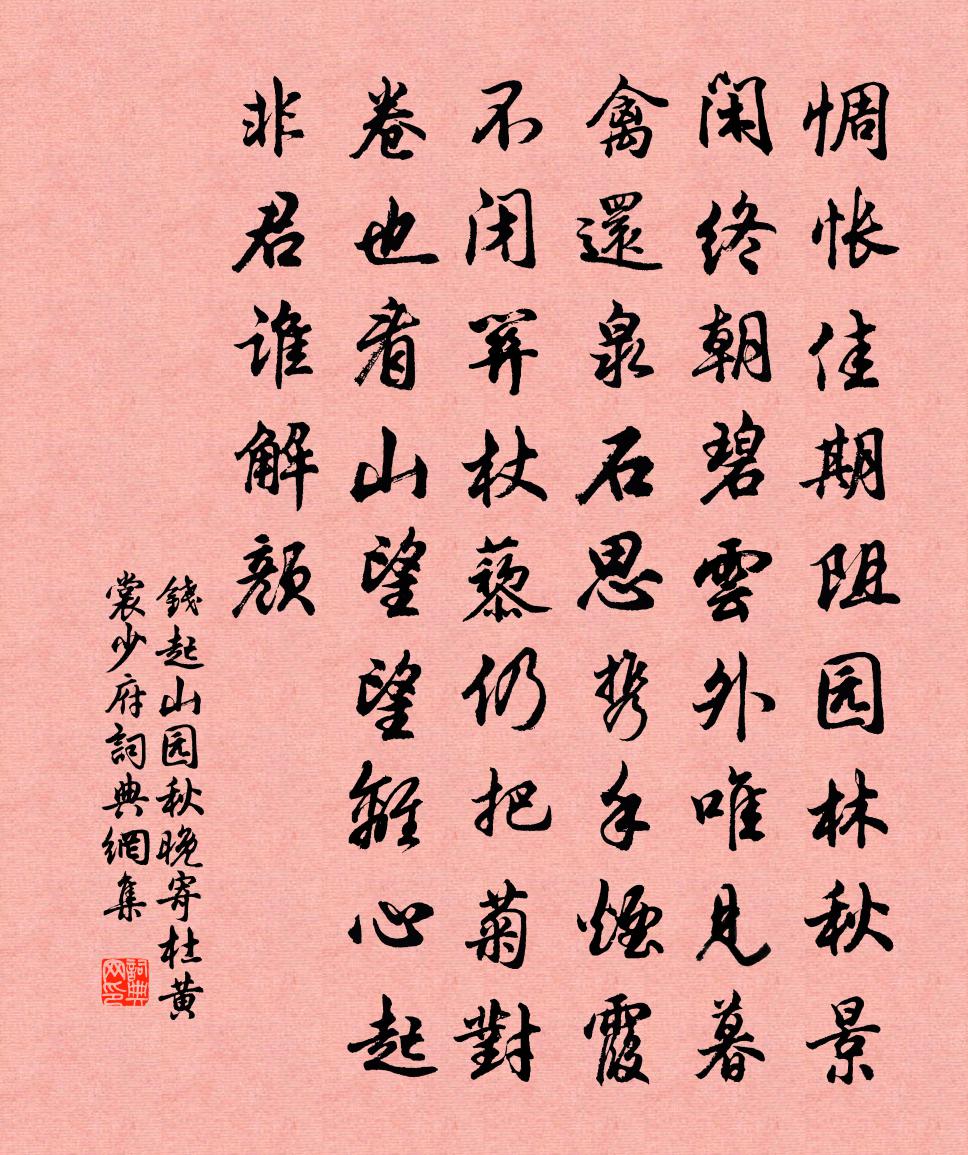 惆怅佳期阻园林秋景
闲终朝碧雲外唯見暮
禽還泉石思携手煙霞
不闭關杖藜仍把菊對
卷也看山望望離心起
非君谁解颜
錢起山园秋晚寄杜黄
裳少府詞典網集
詞典
网印